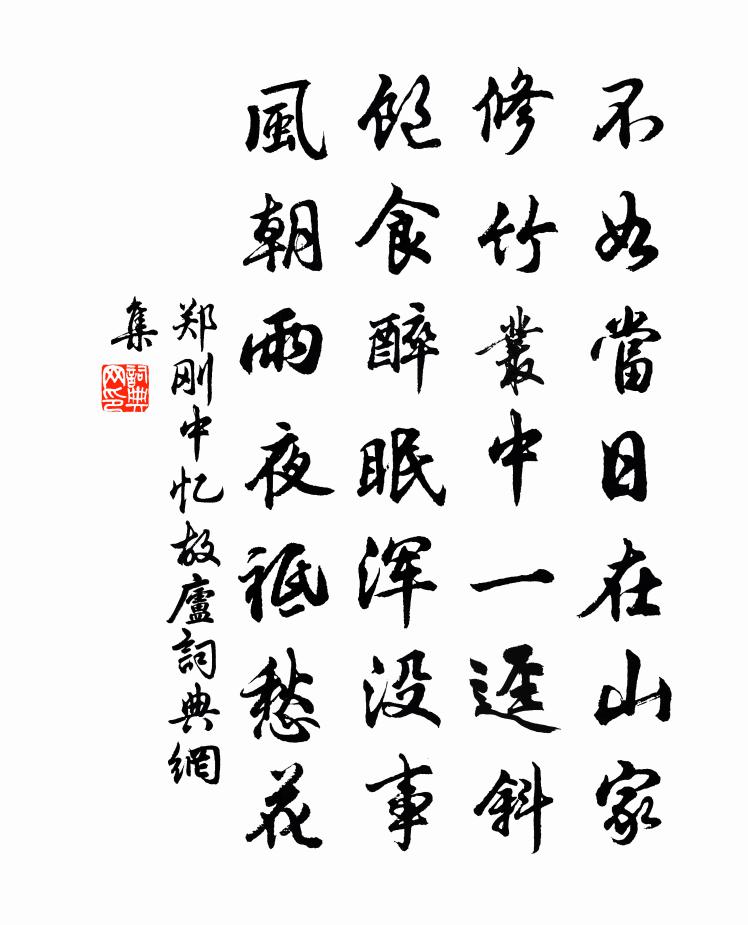 不如當日在山家
修竹叢中一逕斜
飽食醉眠浑没事
風朝雨夜祗愁花
郑刚中忆故廬詞典網
集
詞典网印